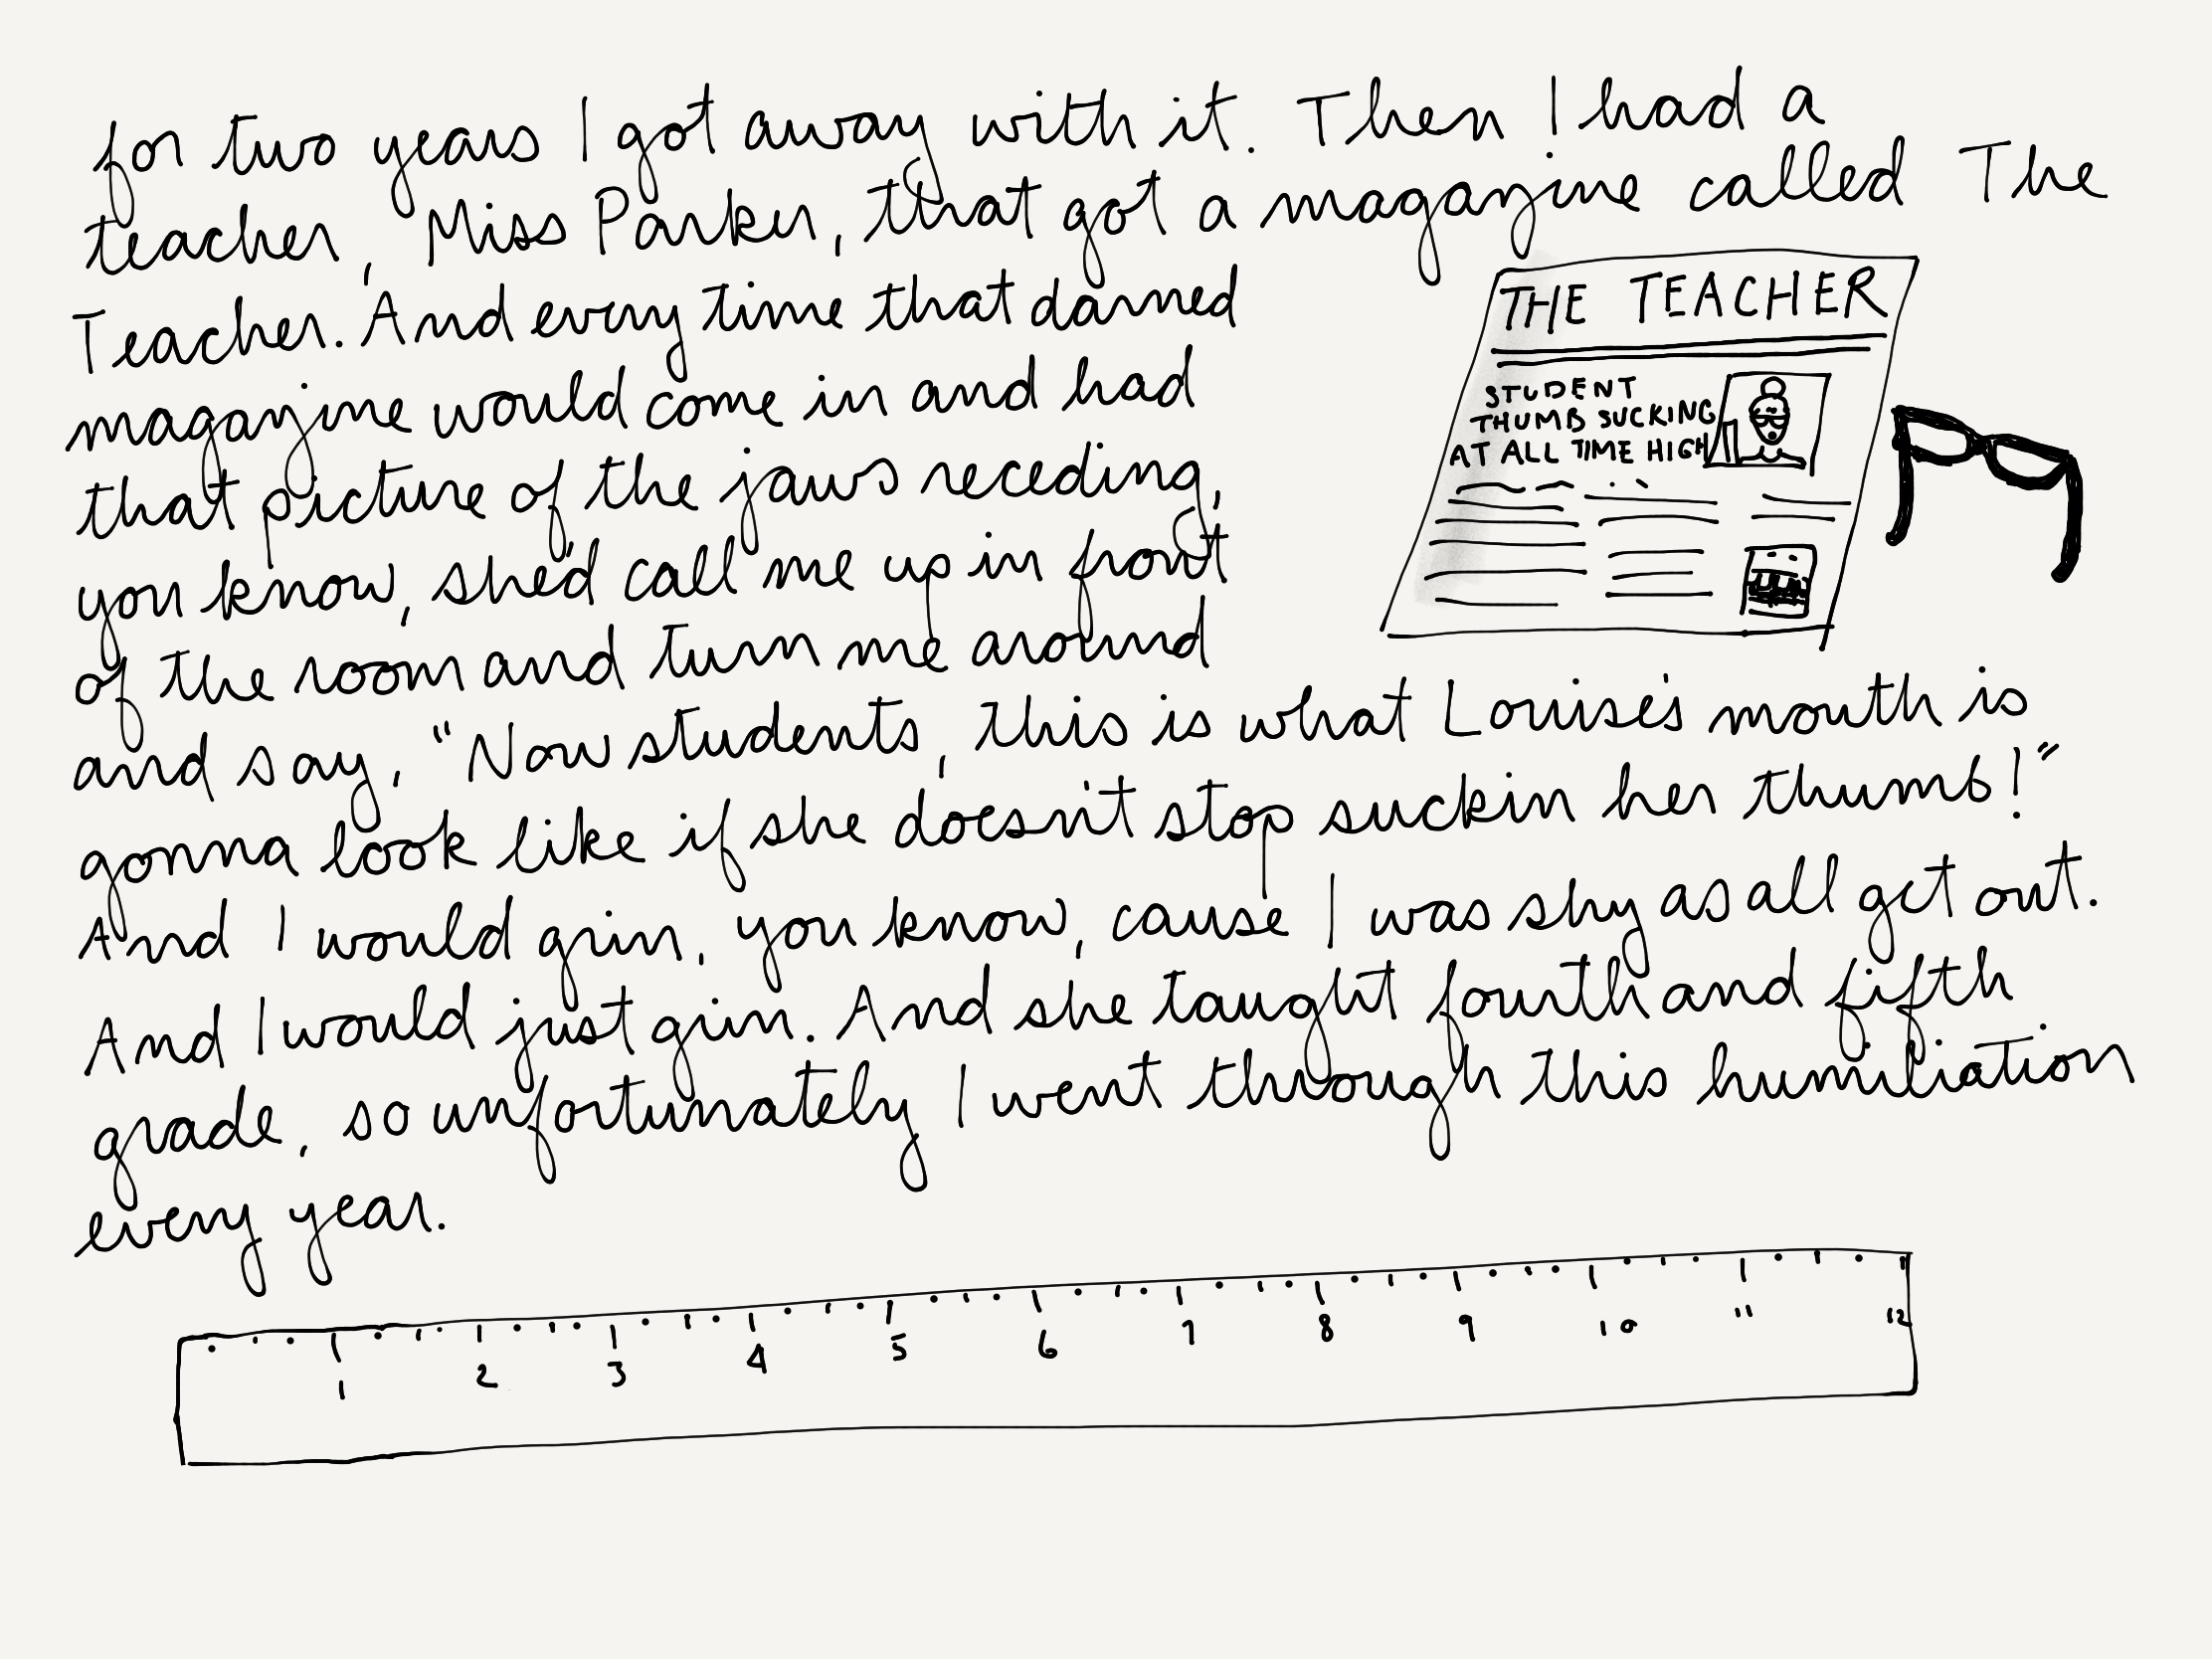 for two years I got away with it. Then I had a
teacher, Miss Parker, that got a magazine called The
Teacher. And every time that darned
magazine would come in and had
that picture of the jaws receding,
you know, she'd call me up in front
of the room and turn me around
and say, "Now students, this is what Louise's mouth is
gonna look like if she doesn't stop suckin her thumb!"
And I would grin, you know, cause I was shy as all get out.
And I would just grin. And she taught fourth and fifth
grade, so unfortunately I went through this humiliation
every year.
THE TEACHER
STUDENT
THUMB SUCKING
AT ALL TIME HIGH
1 2 3 4 5 6 7 8 9 10 11 12